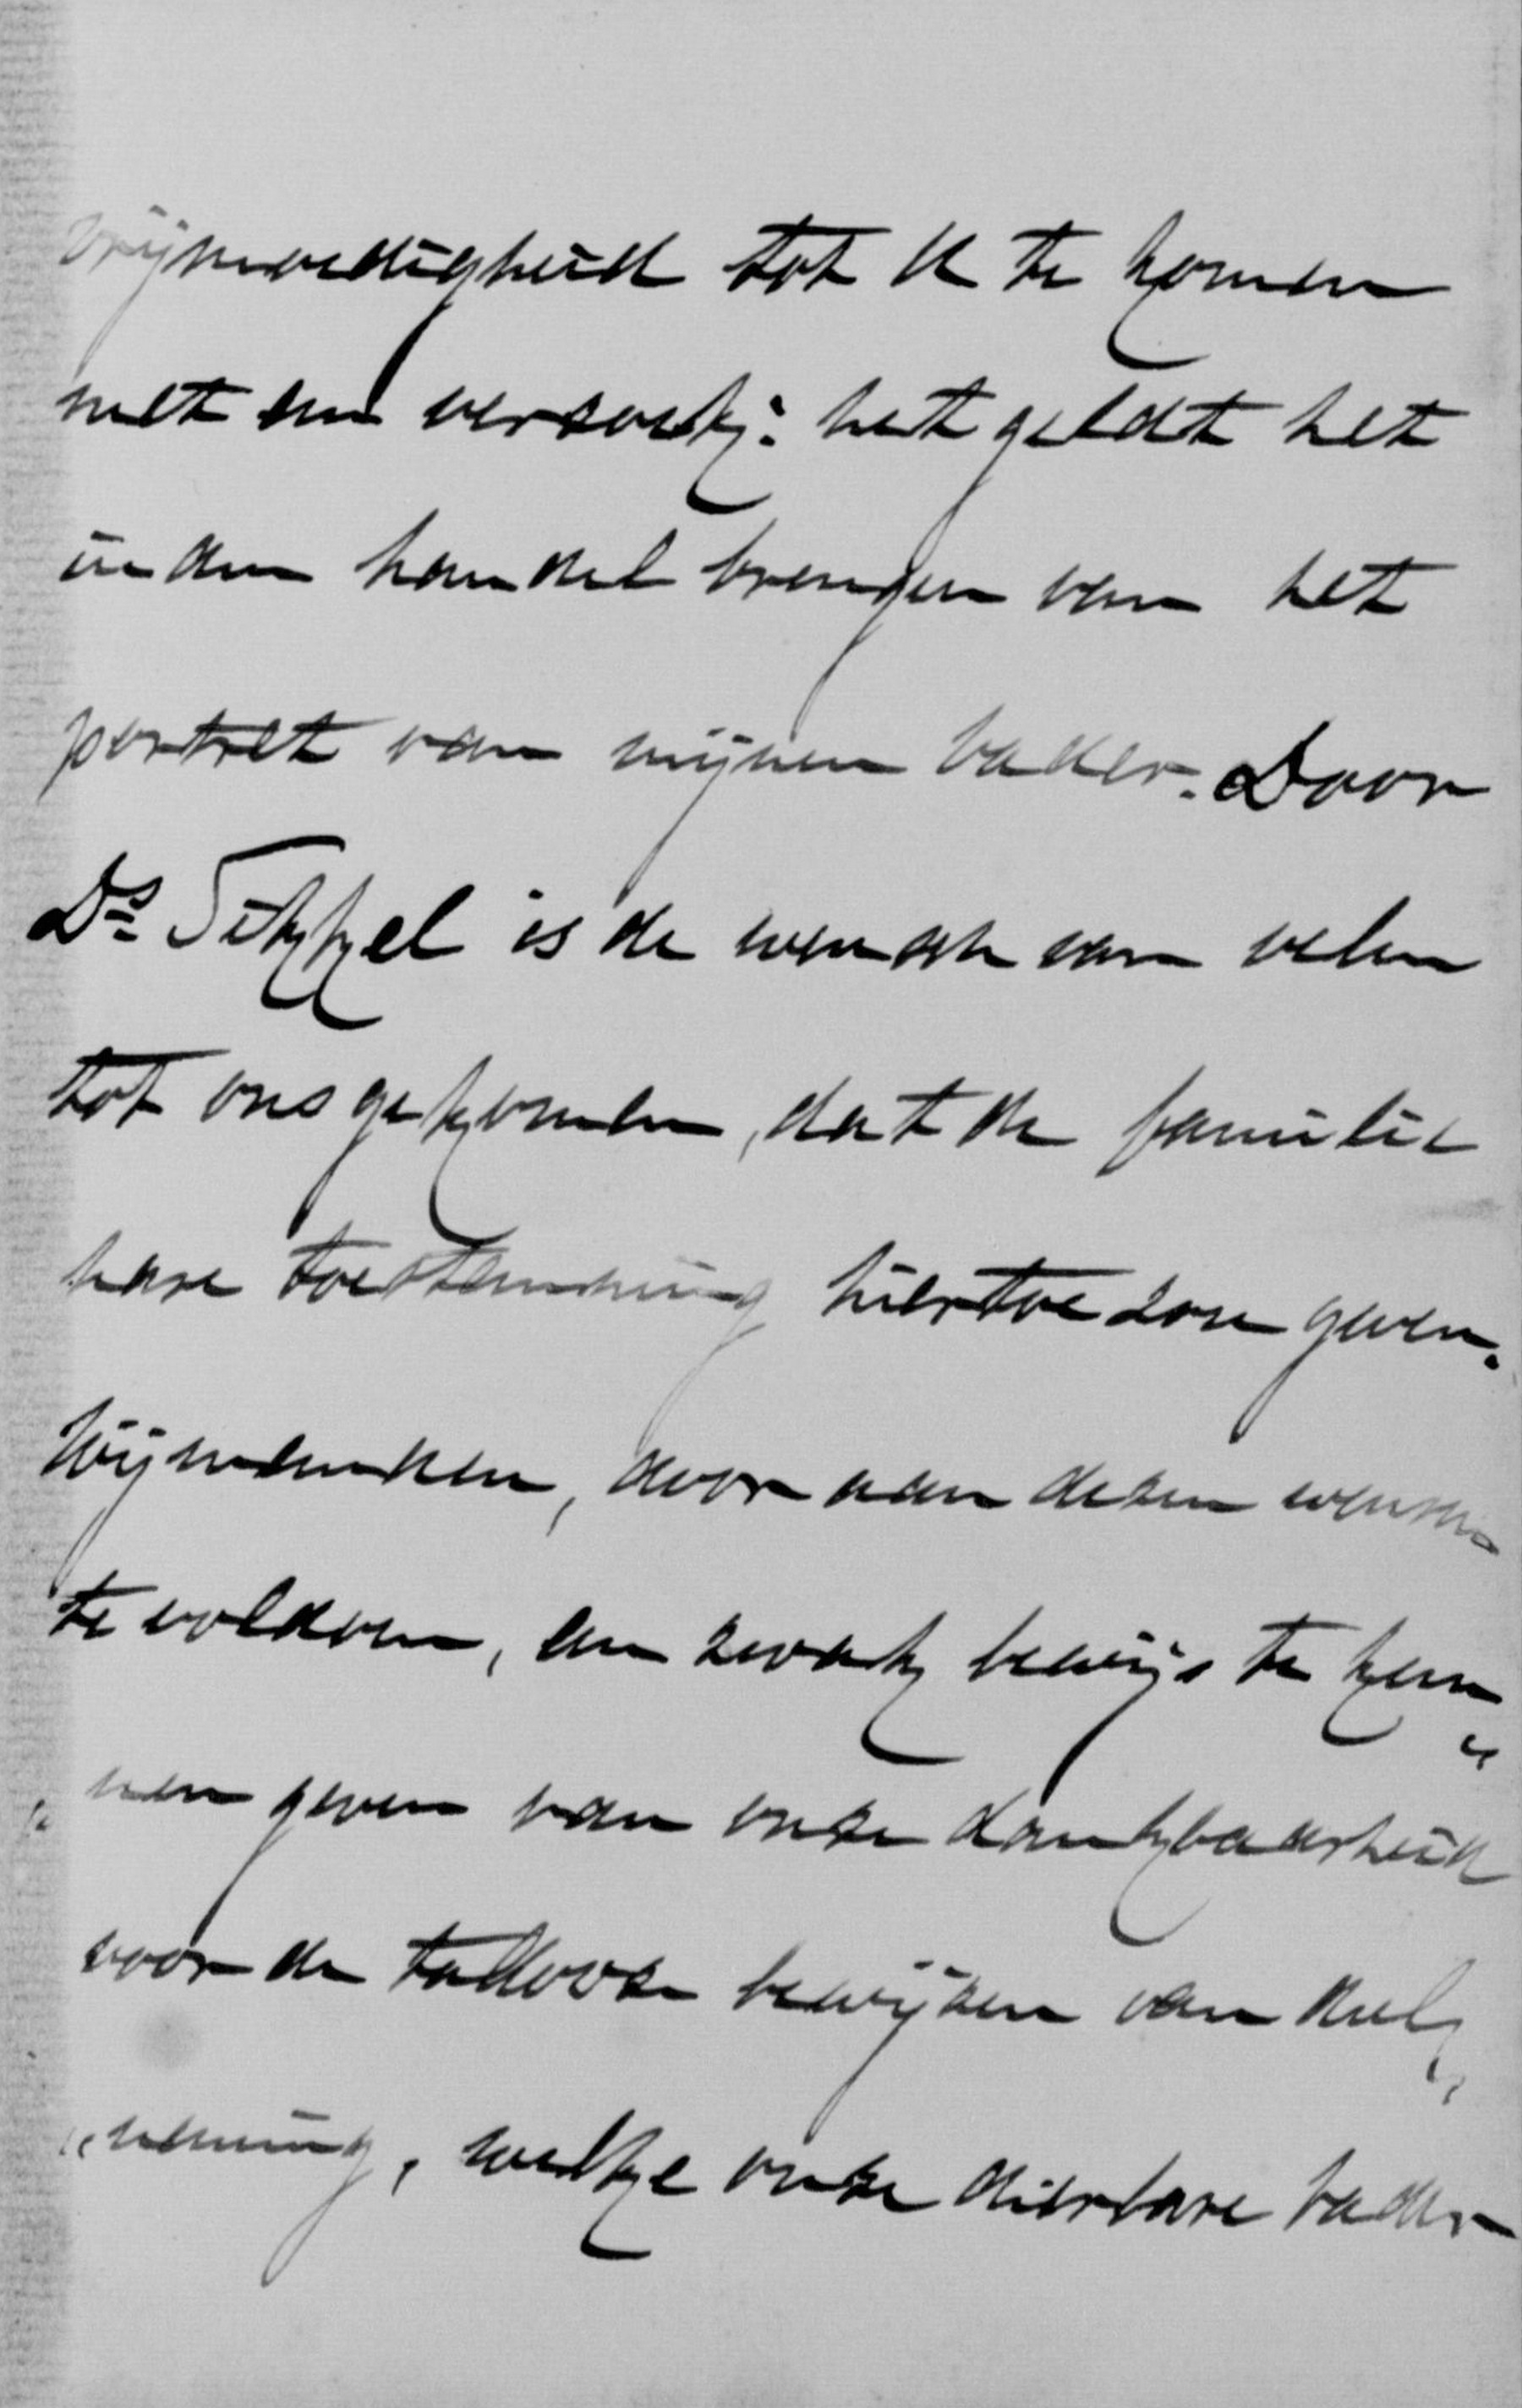 vrijmoedigheid tot U te komen
met een verzoek: het geldt het
in den handel brengen van het
portret van mijnen vader. Door
Ds Sikkel is de wensch van velen
tot ons gekomen, dat de familie
hare toestemming hiertoe zou geven.
Wij meenden, door aan dezen wensch
te voldoen, een zwak bewijs te kun„
nen geven van onze dankbaarheid
voor de tallooze bewijzen van deel„
„neming, welke onze dierbare vader